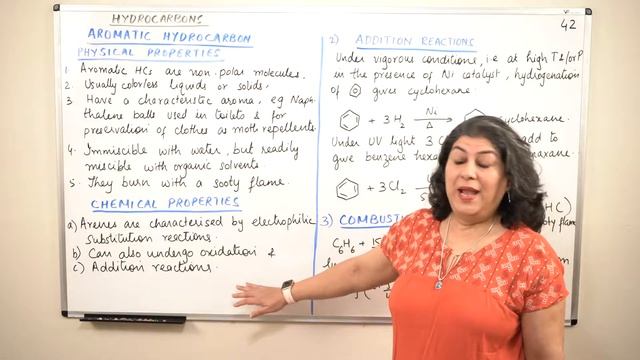 HYDROCARBONS
42
AROMATIC HYDROCARBON
PHYSICAL PROPERTIES
1. Aromatic HCs are non polar molecules.
2. Usually colorless liquids or solids.
3 Have a characteristic aroma, eg Naph-
thalene balls used in toilets & for
preservation of clothes as moth repellents.
4. Immiscible with water, but readily
miscible with organic solvents
5. They burn with a sooty flame.
CHEMICAL PROPERTIES
a) Arenes are characterised by electrophilic
substitution reactions.
b) Can also undergo oxidation &
c) Addition reactions.
2) ADDITION REACTIONS
Under vigorous conditions, i.e at high T &/or P
in the presence of Ni catalyst, hydrogenation
of gives cyclohexane.
+ 3H2 Ni Δ cyclohexane.
Under UV light 3 add to
give benzene
+ 3Cl2
3)
C6H6 +